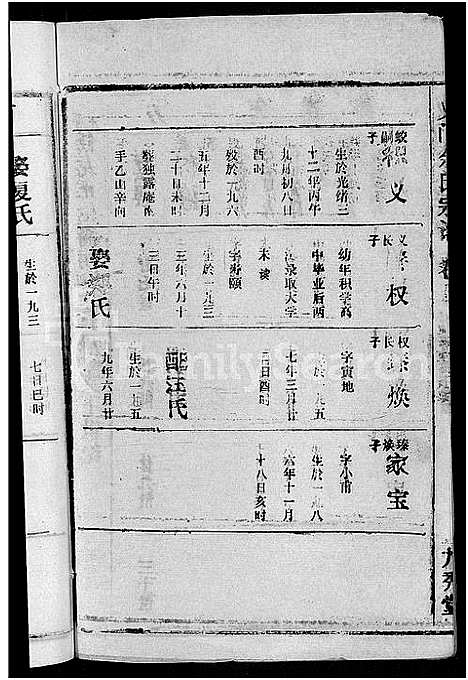 绞嗣子
义
生於光绪三
十二年丙午
九月初八日
酉时
殁於一九六
五年十二月
二十日未时
葬独露庵南
手乙山辛向
义长子
权
幼年积学高
中毕业后两
江录取大学
未读
字寿颐
生於一九三
三年六月十
三日午时
娶 氏
权长子
焕
字寅地
生於一九五
七年三月廿
三日酉时
配汪氏
生於一九五
九年六月廿
焕子
家宝
字小甫
生於一九八
六年十一月
十八日亥时
娶夏氏
生於一九三
七日巳时